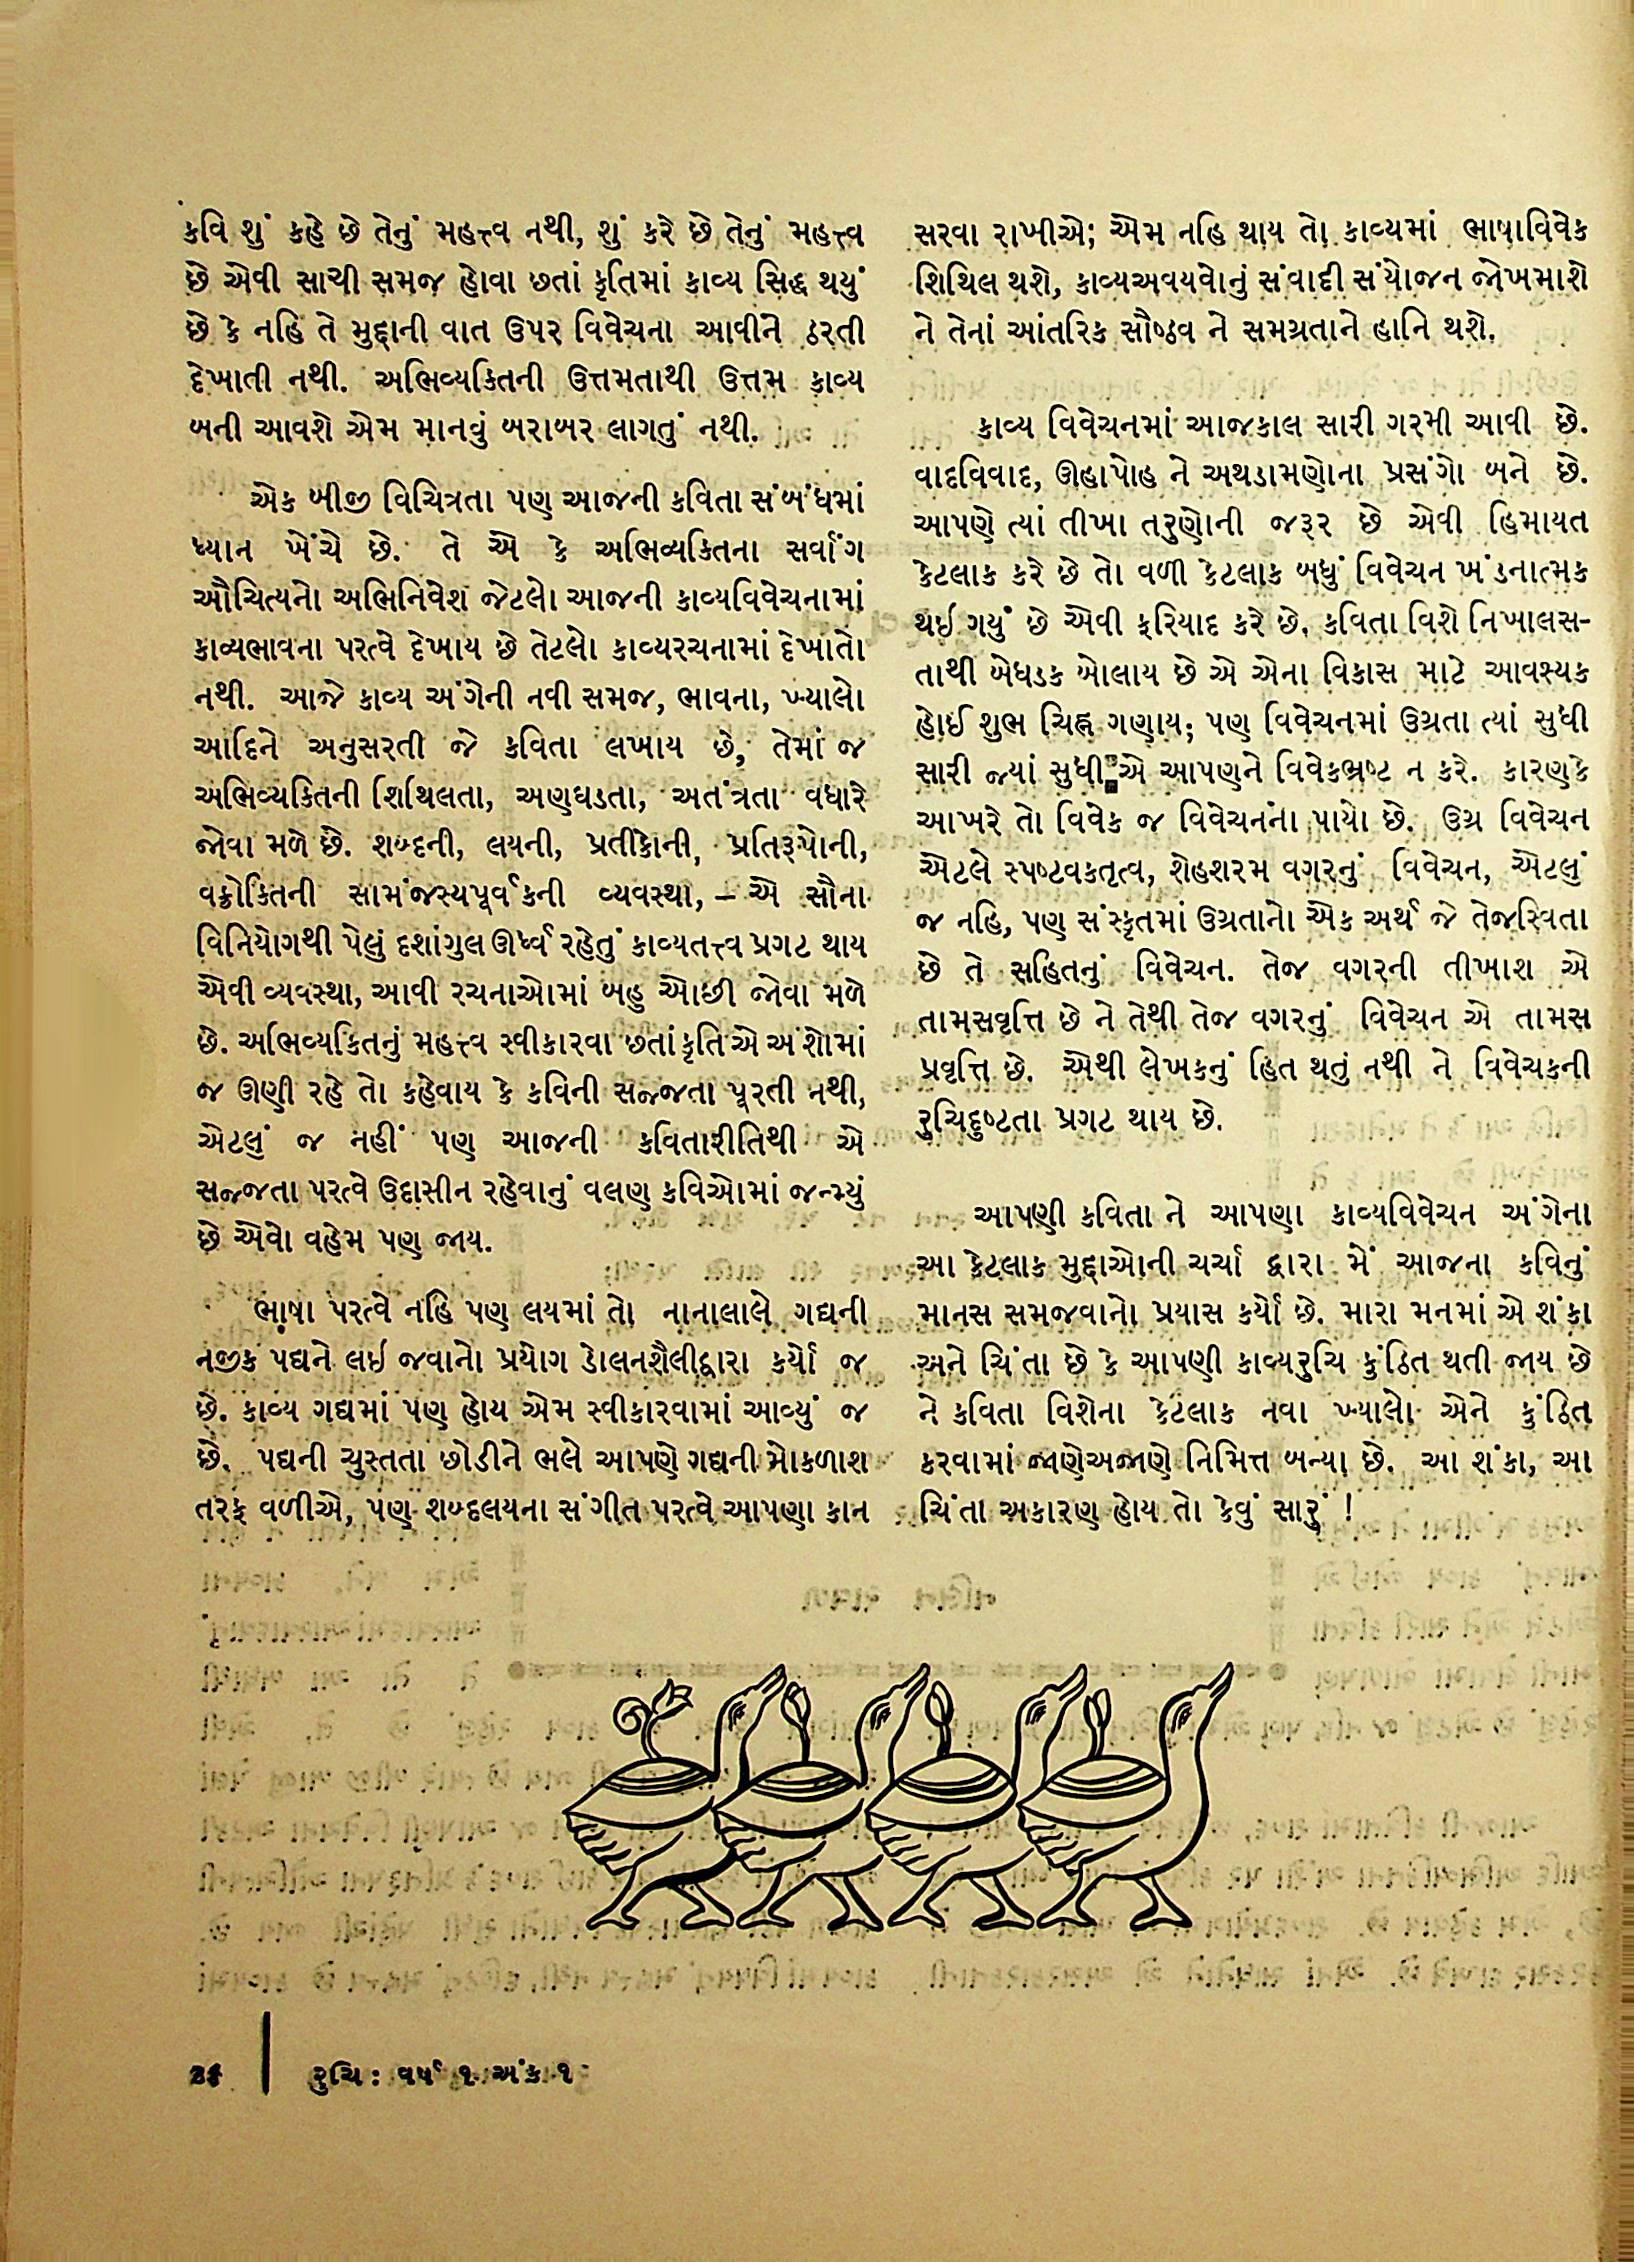 કવિ શું કહે છે તેનું મહત્ત્વ નથી, શું કરે છે તેનું મહત્ત્વ
છે એવી સાચી સમજ હોવા છતાં કૃતિમાં કાવ્ય સિદ્ધ થયું
છે કે નહિ તે મુદ્દાની વાત ઉપર વિવેચના આવીને ઠરતી
દેખાતી નથી. અભિવ્યકિતની ઉત્તમતાથી ઉત્તમ કાવ્ય
બની આવશે એમ માનવું બરાબર લાગતું નથી.
એક બીજી વિચિત્રતા પણ આજની કવિતા સંબંધમાં
ધ્યાન ખેંચે છે. તે એ કે અભિવ્યકિતના સર્વાંગ
ઔચિત્યનો અભિનિવેશ જેટલો આજની કાવ્યવિવેચનામાં
કાવ્યભાવના પરત્વે દેખાય છે તેટલો કાવ્યરચનામાં દેખાતો
નથી. આજે કાવ્ય અંગેની નવી સમજ, ભાવના, ખ્યાલો
આદિને અનુસરતી જે કવિતા લખાય છે, તેમાં જ
અભિવ્યકિતની શિથિલતા, અણઘડતા, અતંત્રતા વધારે
જોવા મળે છે. શબ્દની, લયની, પ્રતીકોની, પ્રતિરૂપોની,
વક્રોકિતની સામંજસ્યપૂર્વકની વ્યવસ્થા, – એ સૌના
વિનિયોગથી પેલું દશાંગુલ ઊર્ધ્વ રહેતું કાવ્યતત્ત્વ પ્રગટ થાય
એવી વ્યવસ્થા, આવી રચનાઓમાં બહુ ઓછી જોવા મળે
છે. અભિવ્યકિતનું મહત્ત્વ સ્વીકારવા છતાં કૃતિ એ અંશોમાં
જ ઊણી રહે તો કહેવાય કે કવિની સજ્જતા પૂરતી નથી,
એટલું જ નહીં પણ આજની કવિતારીતિથી એ
સજ્જતા પરત્વે ઉદાસીન રહેવાનું વલણ કવિઓમાં જન્મ્યું
છે એવો વહેમ પણ જાય.
ભાષા પરત્વે નહિ પણ લયમાં તો નાનાલાલે ગદ્યની
નજીક પદ્યને લઇ જવાનો પ્રયોગ ડોલનશૈલીદ્વારા કર્યો જ
છે. કાવ્ય ગદ્યમાં પણ હોય એમ સ્વીકારવામાં આવ્યું જ
છે. પદ્યની ચુસ્તતા છોડીને ભલે આપણે ગદ્યની મોકળાશ
તરફ વળીએ, પણ શબ્દલયના સંગીત પરત્વે આપણા કાન
સરવા રાખીએ; એમ નહિ થાય તો કાવ્યમાં ભાષાવિવેક
શિથિલ થશે, કાવ્યઅવયવોનું સંવાદી સંયોજન જોખમાશે
ને તેનાં આંતરિક સૌષ્ઠવ ને સમગ્રતાને હાનિ થશે.
કાવ્ય વિવેચનમાં આજકાલ સારી ગરમી આવી છે.
વાદવિવાદ, ઊહાપોહ ને અથડામણોના પ્રસંગો બને છે.
આપણે ત્યાં તીખા તરુણોની જરૂર છે એવી હિમાયત
કેટલાક કરે છે તો વળી કેટલાક બધું વિવેચન ખંડનાત્મક
થઇ ગયું છે એવી ફરિયાદ કરે છે. કવિતા વિશે નિખાલસ-
તાથી બેધડક બોલાય છે એ એના વિકાસ માટે આવશ્યક
હોઈ શુભ ચિહ્ન ગણાય; પણ વિવેચનમાં ઉગ્રતા ત્યાં સુધી
સારી જ્યાં સુધી એ આપણને વિવેકભ્રષ્ટ ન કરે. કારણકે
આખરે તો વિવેક જ વિવેચનનો પાયો છે. ઉગ્ર વિવેચન
એટલે સ્પષ્ટવકતૃત્વ, શેહશરમ વગરનું વિવેચન, એટલું
જ નહિ, પણ સંસ્કૃતમાં ઉગ્રતાનો એક અર્થ જે તેજસ્વિતા
છે તે સહિતનું વિવેચન. તેજ વગરની તીખાશ એ
તામસવૃત્તિ છે ને તેથી તેજ વગરનું વિવેચન એ તામસ
પ્રવૃત્તિ છે. એથી લેખકનું હિત થતું નથી ને વિવેચકની
રુચિદુષ્ટતા પ્રગટ થાય છે.
આપણી કવિતા ને આપણા કાવ્યવિવેચન અંગેના
આ કેટલાક મુદ્દાઓની ચર્ચા દ્વારા મેં આજના કવિનું
માનસ સમજવાનો પ્રયાસ કર્યો છે. મારા મનમાં એ શંકા
અને ચિંતા છે કે આપણી કાવ્યરુચિ કુંઠિત થતી જાય છે
ને કવિતા વિશેના કેટલાક નવા ખ્યાલો એને કુંઠિત
કરવામાં જાણેઅજાણે નિમિત્ત બન્યા છે. આ શંકા, આ
ચિંતા અકારણ હોય તો કેવું સારું !
રુચિ : વર્ષ ૧ અંક ૧